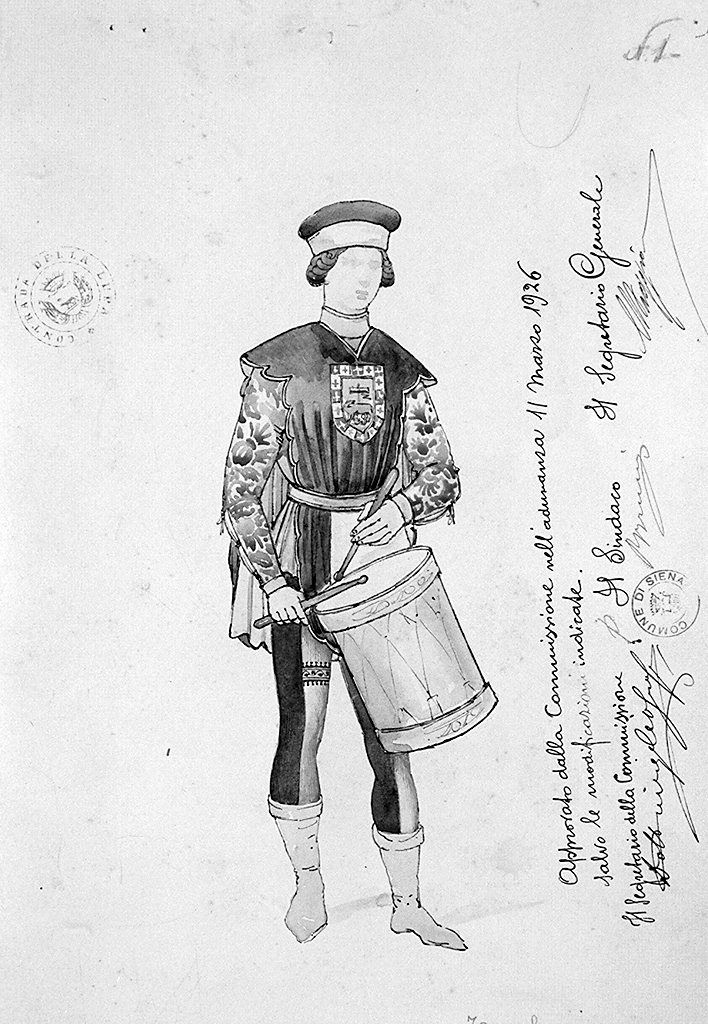 N. 1
CONTRADA DELLA LUPA
Approvato dalla Commissione nell'adunanza 11 Marzo 1926
salvo le modificazioni indicate.
Il Segretario della Commissione
Il Sindaco
Il Segretario Generale
COMUNE DI SIENA